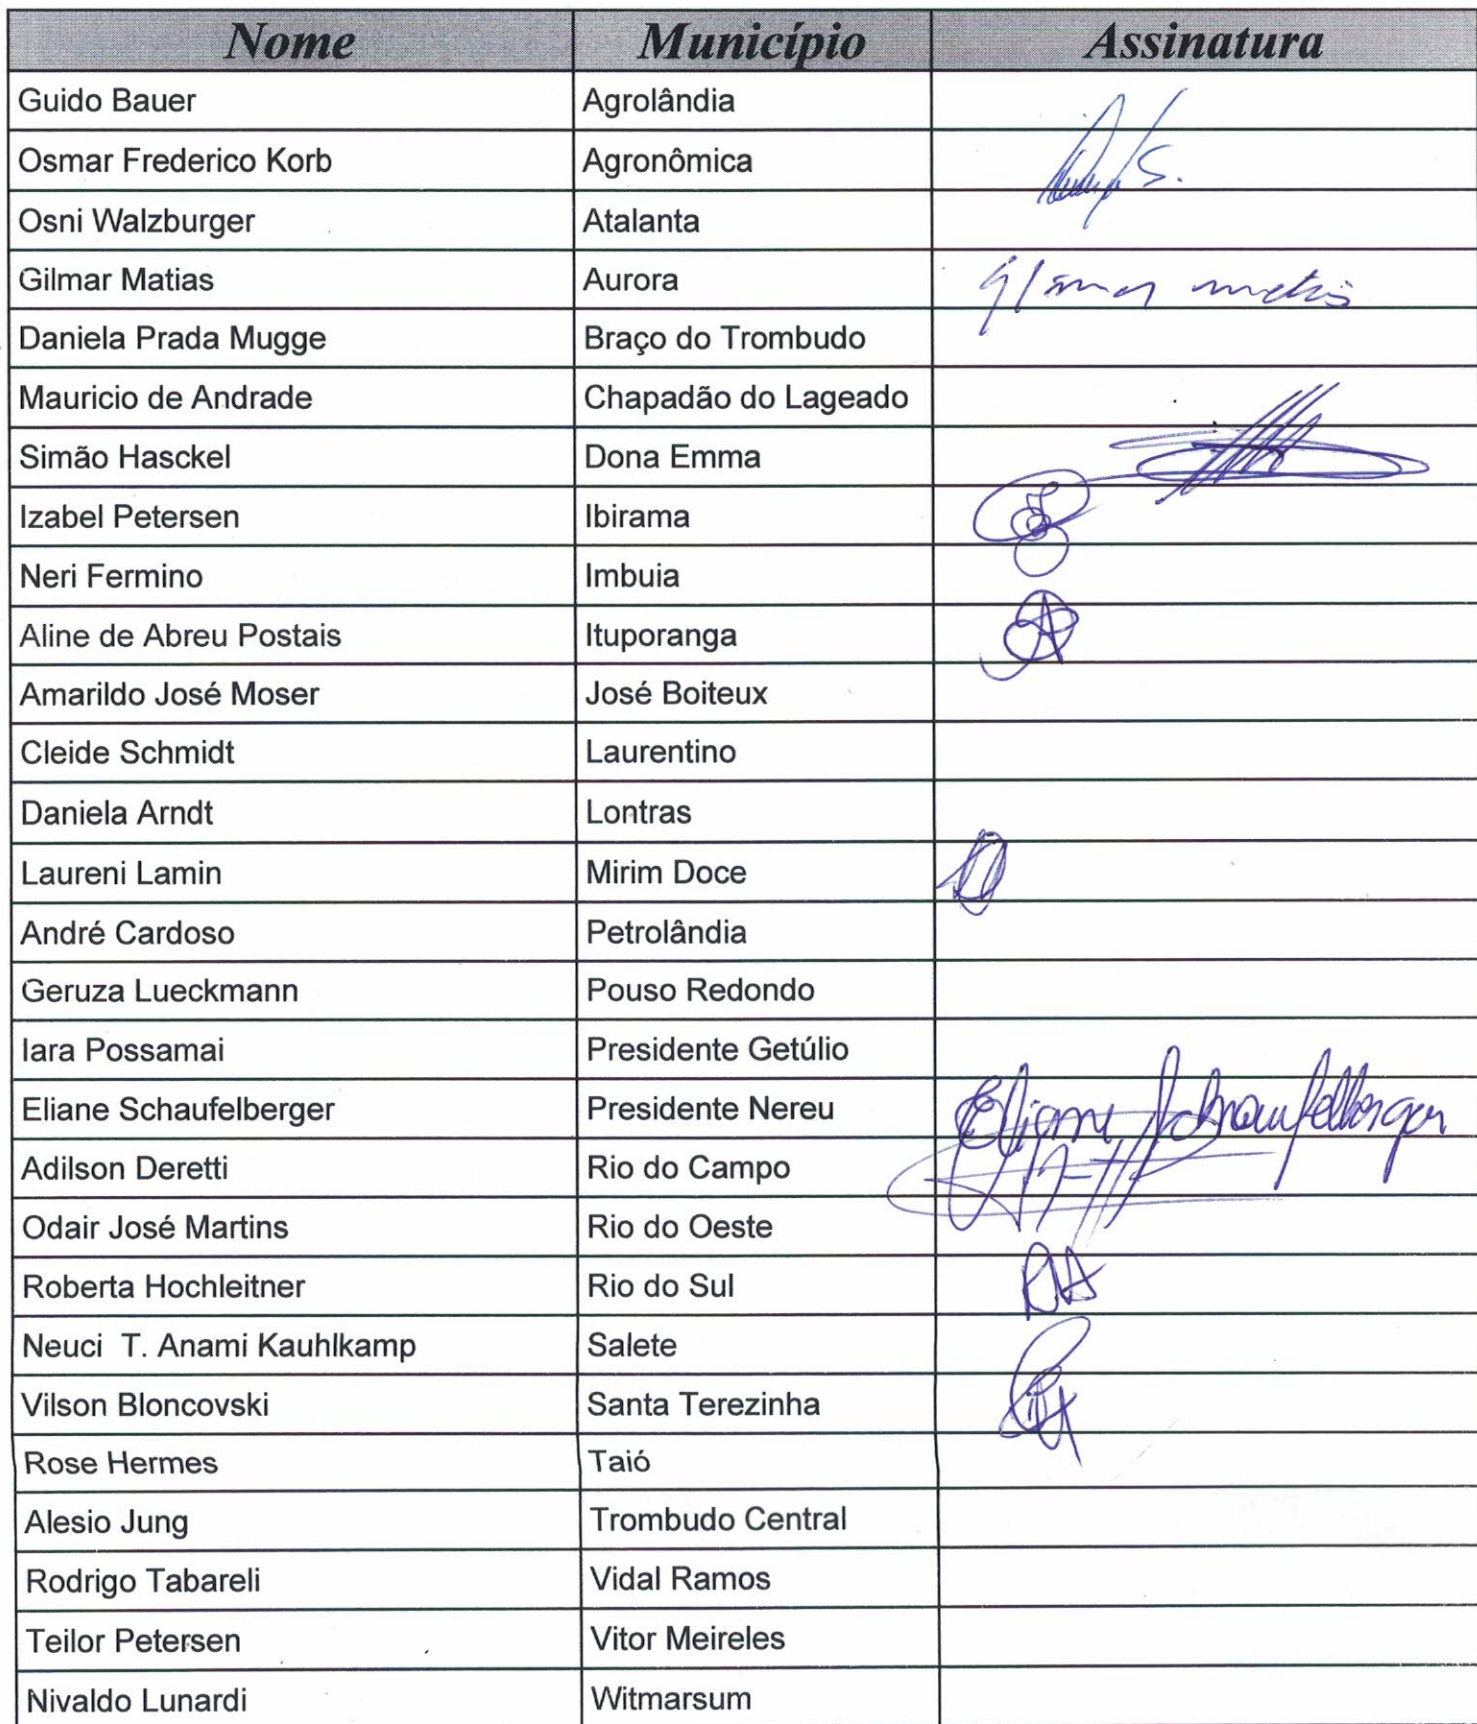 Nome Município Assinatura
Guido Bauer Agrolândia
Osmar Frederico Korb Agronômica
Osni Walzburger Atalanta
Gilmar Matias Aurora
Daniela Prada Mugge Braço do Trombudo
Mauricio de Andrade Chapadão do Lageado
Simão Hasckel Dona Emma
Izabel Petersen Ibirama
Neri Fermino Imbuia
Aline de Abreu Postais Ituporanga
Amarildo José Moser José Boiteux
Cleide Schmidt Laurentino
Daniela Arndt Lontras
Laureni Lamin Mirim Doce
André Cardoso Petrolândia
Geruza Lueckmann Pouso Redondo
Iara Possamai Presidente Getúlio
Eliane Schaufelberger Presidente Nereu Eliane Schaufelberger
Adilson Deretti Rio do Campo
Odair José Martins Rio do Oeste
Roberta Hochleitner Rio do Sul
Neuci T. Anami Kauhlkamp Salete
Vilson Bloncovski Santa Terezinha
Rose Hermes Taió
Alesio Jung Trombudo Central
Rodrigo Tabareli Vidal Ramos
Teilor Petersen Vitor Meireles
Nivaldo Lunardi Witmarsum